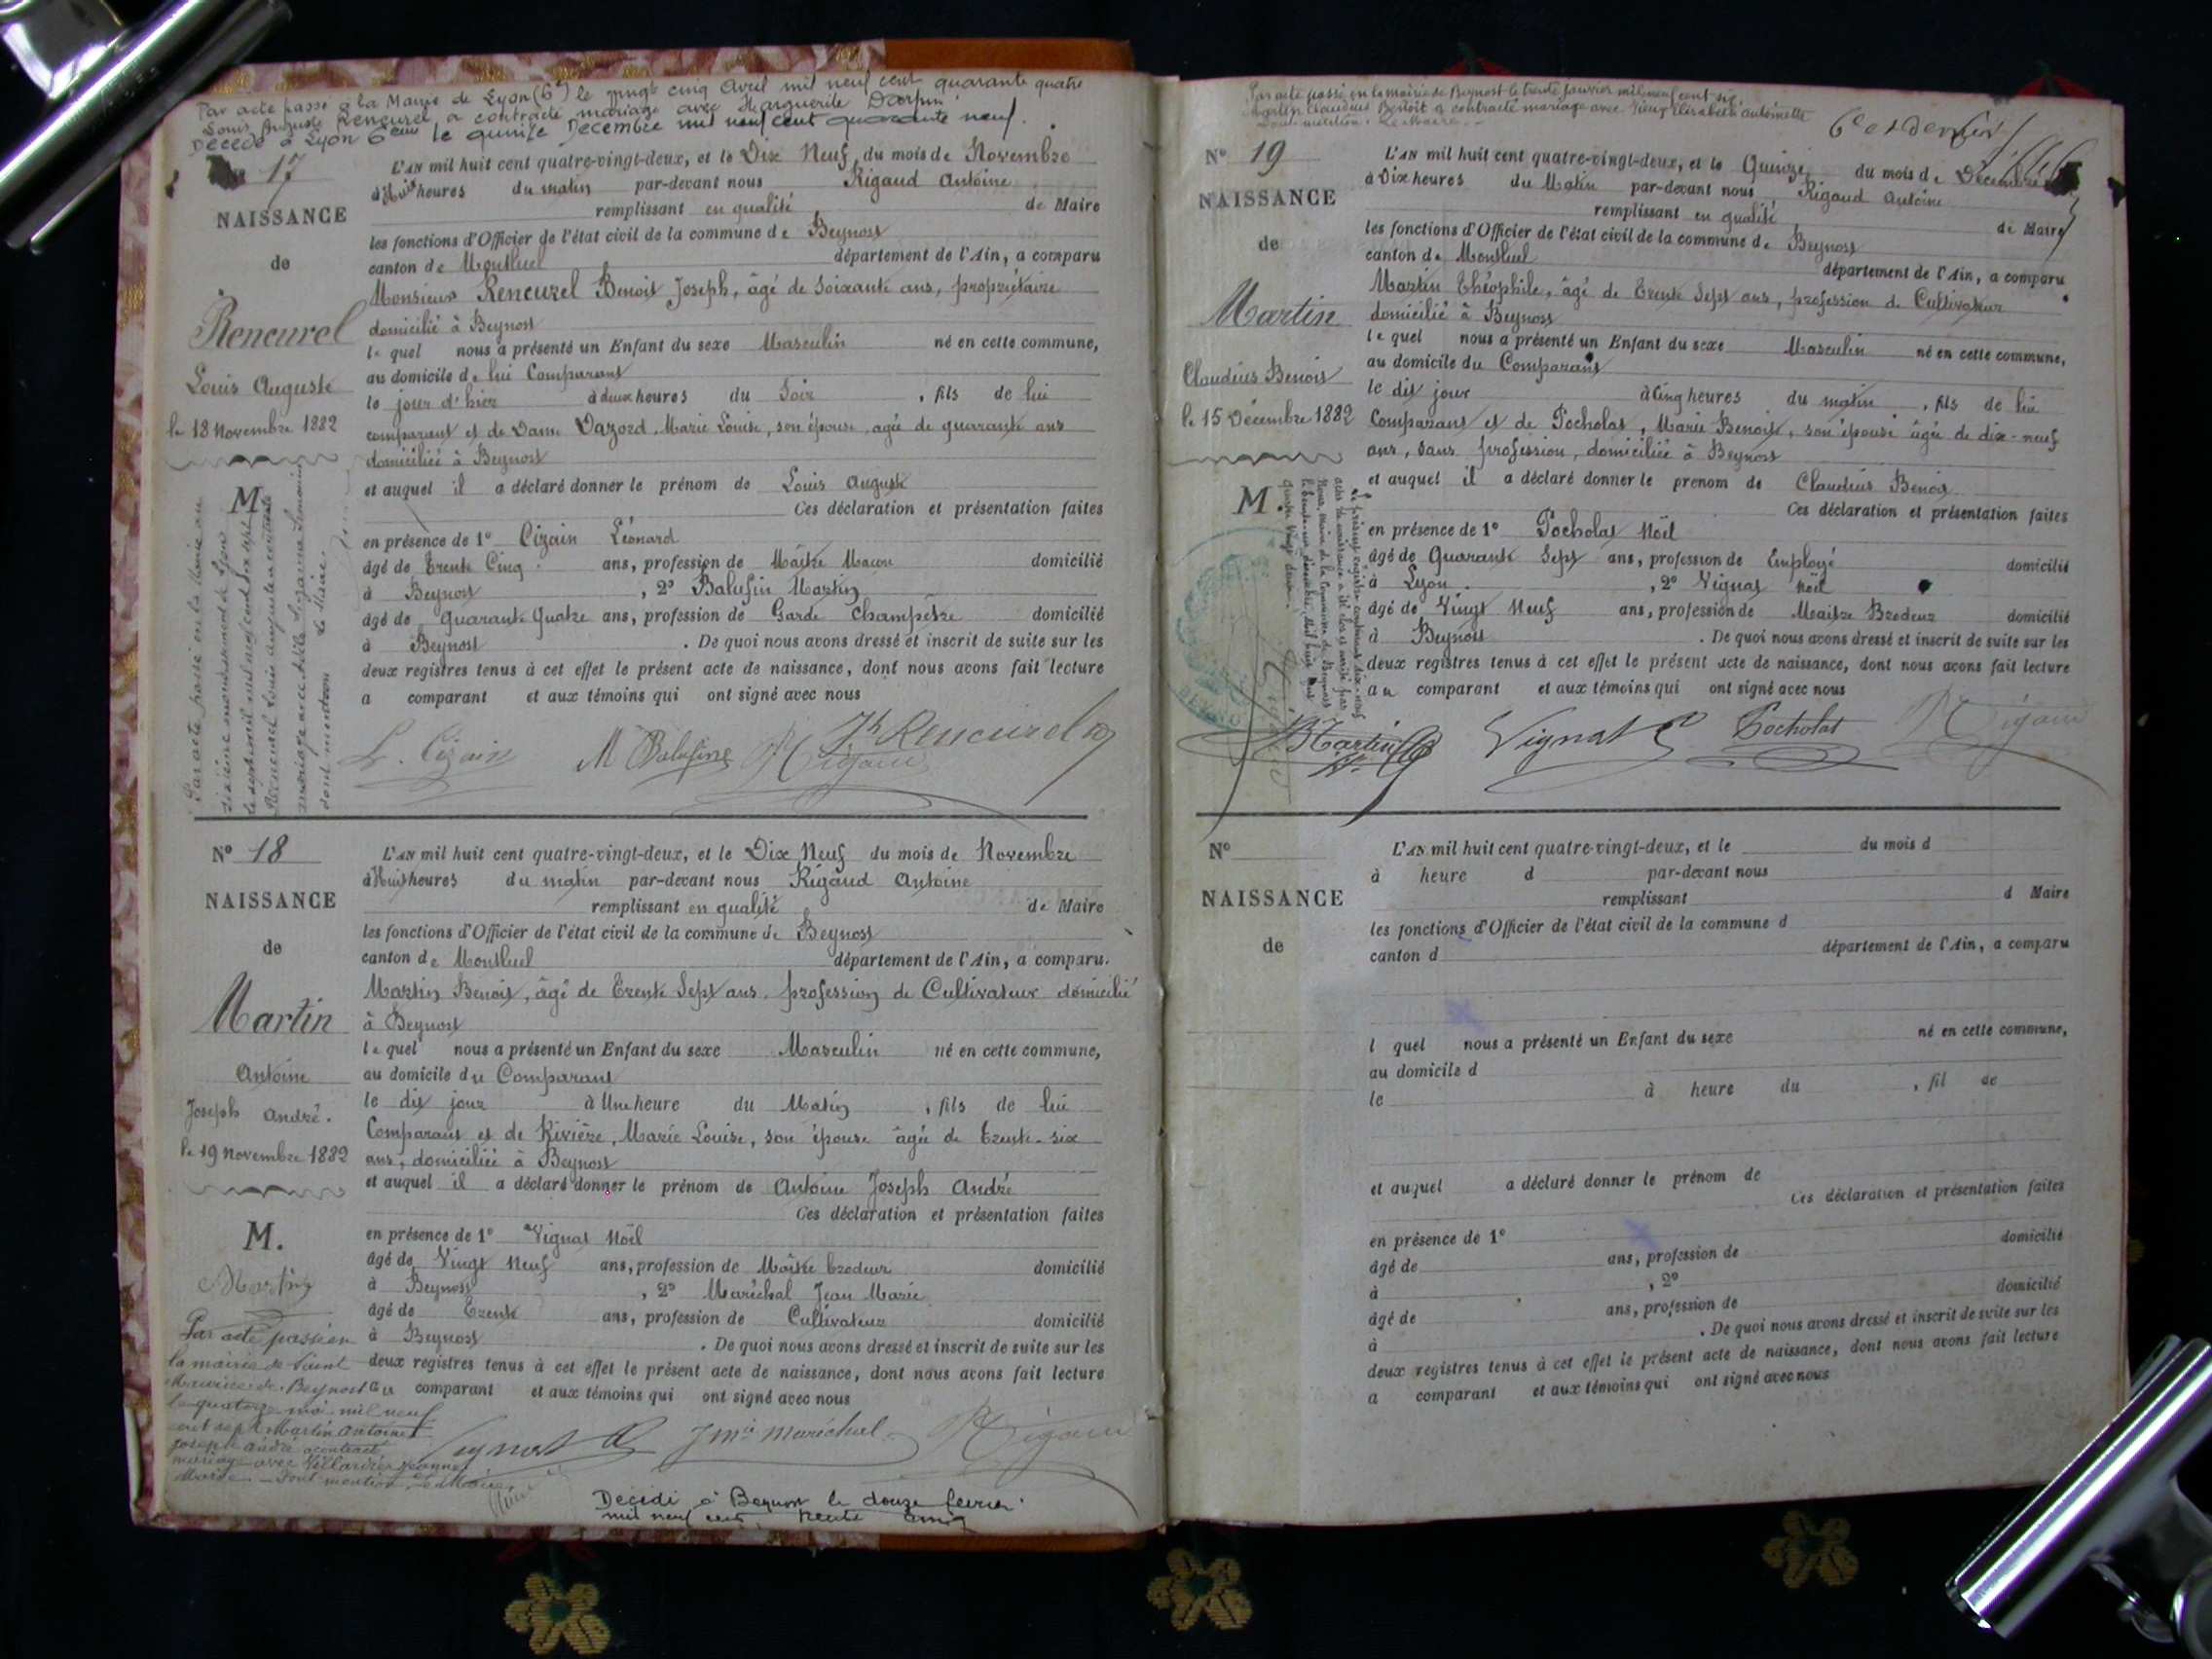 Par acte passé à la Mairie de Lyon (6e) le vingt cinq Avril mil neuf cent quarante quatre
Louis Auguste Rencurel a contracté mariage avec Marguerite
Décédé à Lyon 6eme le quinze Décembre mil neuf cent quarante neuf.
17
NAISSANCE
de
Rencurel
Louis Auguste
le 18 Novembre 1882
M.
L'AN mil huit cent quatre-vingt-deux, et le Dix Neuf, du mois de Novembre
à Huit heures du matin par-devant nous Rigaud Antoine
remplissant en qualité de Maire
les fonctions d'Officier de l'état civil de la commune de Beynost
canton de Montluel département de l'Ain, a comparu
Monsieur Rencurel Benoit Joseph, âgé de soixante ans, propriétaire
domicilié à Beynost
lequel nous a présenté un Enfant du sexe Masculin né en cette commune,
au domicile de lui Comparant
le jour d'hier à deux heures du Soir, fils de lui
comparant et de Dame Dazord Marie Louise, son épouse, agée de quarante ans
domiciliée à Beynost
et auquel il a déclaré donner le prénom de Louis Auguste
Ces déclaration et présentation faites
en présence de 1° Cizain Léonard
âgé de Trente Cinq ans, profession de Maître Maçon domicilié
à Beynost, 2° Balufin Martin
âgé de Quarante Quatre ans, profession de Garde Champêtre domicilié
à Beynost. De quoi nous avons dressé et inscrit de suite sur les
deux registres tenus à cet effet le présent acte de naissance, dont nous avons fait lecture
a comparant et aux témoins qui ont signé avec nous
Par acte passé en la Mairie du
sixième arrondissement de Lyon
mariage avec
dont mention Le Maire
L. Cizain M Balufin Rigaud Jh Rencurel
N° 18
NAISSANCE
de
Martin
Antoine
Joseph André.
le 19 Novembre 1882
M.
Martin
L'AN mil huit cent quatre-vingt-deux, et le Dix Neuf du mois de Novembre
à Huit heures du matin par-devant nous Rigaud Antoine
remplissant en qualité de Maire
les fonctions d'Officier de l'état civil de la commune de Beynost
canton de Montluel département de l'Ain, a comparu.
Martin Benoit, âgé de Trente Sept ans, profession de Cultivateur domicilié
à Beynost
lequel nous a présenté un Enfant du sexe Masculin né en cette commune,
au domicile du Comparant
le dit jour à Une heure du Matin, fils de lui
Comparant et de Rivière, Marie Louise, son épouse âgée de trente-six
ans, domiciliée à Beynost
et auquel il a déclaré donner le prénom de Antoine Joseph André
Ces déclaration et présentation faites
en présence de 1° Vignat Noël
âgé de Vingt Neuf ans, profession de Maître brodeur domicilié
à Beynost, 2° Maréchal Jean Marie
âgé de Trente ans, profession de Cultivateur domicilié
à Beynost. De quoi nous avons dressé et inscrit de suite sur les
deux registres tenus à cet effet le présent acte de naissance, dont nous avons fait lecture
au comparant et aux témoins qui ont signé avec nous
Par acte passé en
la mairie de Saint
Maurice de Beynost le
quatorze mai mil neuf
cent sept Martin Antoine
Joseph André a contracté
mariage avec Villardier Jeanne
Marie. Dont mention, Le Maire,
Vignat Jmie Maréchal Rigaud
Décédé à Beynost le douze février
mil neuf cent trente cinq
Par acte passé en la mairie de Beynost le trente Janvier mil neuf cent six,
Martin Claudius Benoit a contracté mariage avec Elisabeth Antoinette
Dont mention. Le Maire
6e et dernier
N° 19
NAISSANCE
de
Martin
Claudius Benoit
le 15 Décembre 1882
M.
L'AN mil huit cent quatre-vingt-deux, et le Quinze du mois de Décembre
à Dix heures du Matin par-devant nous Rigaud Antoine
remplissant en qualité de Maire
les fonctions d'Officier de l'état civil de la commune de Beynost
canton de Montluel département de l'Ain, a comparu
Martin Théophile, âgé de Trente Sept ans, profession de Cultivateur
domicilié à Beynost
lequel nous a présenté un Enfant du sexe Masculin né en cette commune,
au domicile du Comparant
le dit jour à Cinq heures du matin, fils de lui
Comparant et de Pocholat, Marie Benoite, son épouse âgée de dix-neuf
ans, sans profession, domiciliée à Beynost
et auquel il a déclaré donner le prénom de Claudius Benoit
Ces déclaration et présentation faites
en présence de 1° Pocholat Noël
âgé de Quarante Sept ans, profession de Employé domicilié
à Lyon, 2° Vignat Noël
âgé de Vingt Neuf ans, profession de Maître Brodeur domicilié
à Beynost. De quoi nous avons dressé et inscrit de suite sur les
deux registres tenus à cet effet le présent acte de naissance, dont nous avons fait lecture
au comparant et aux témoins qui ont signé avec nous
Le présent registre contenant dix-neuf
actes de naissance a été clos et arrêté par
Nous, Maire de la Commune de Beynost
le trente-un décembre, Mil huit cent
quatre vingt deux.
Martin Vignat Pocholat Rigaud
N°
NAISSANCE
de
L'AN mil huit cent quatre-vingt-deux, et le du mois d
à heure d par-devant nous
remplissant d Maire
les fonctions d'Officier de l'état civil de la commune d
canton d département de l'Ain, a comparu
l quel nous a présenté un Enfant du sexe né en cette commune,
au domicile d
le à heure du, fil de
et auquel a déclaré donner le prénom de
Ces déclaration et présentation faites
en présence de 1°
âgé de ans, profession de domicilié
à, 2°
âgé de ans, profession de domicilié
à. De quoi nous avons dressé et inscrit de suite sur les
deux registres tenus à cet effet le présent acte de naissance, dont nous avons fait lecture
a comparant et aux témoins qui ont signé avec nous